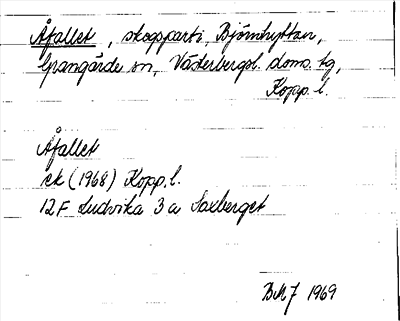 Åfallet, skogsparti, Björnhyttan,
Grangärde sn, Västerbergsl. doms. tg,
Kopp. l.
Åfallet
ek (1968) Kopp. l.
12F Ludvika 3a Saxberget
BMJ 1969